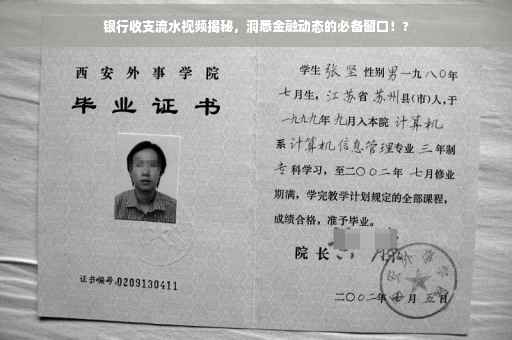 银行收支流水视频揭秘，洞悉金融动态的必备窗口！?
西安外事学院
毕业证书
证书编号:0209130411
学生 张坚 性别 男 一九八〇年
七月生，江苏省 苏州县(市)人，于
一九九九年 九月入本院 计算机
系 计算机信息管理 专业 三 年制
专 科学习，至二〇〇二年 七月修业
期满，学完教学计划规定的全部课程，
成绩合格，准予毕业。
院长
二〇〇二年 月 五日